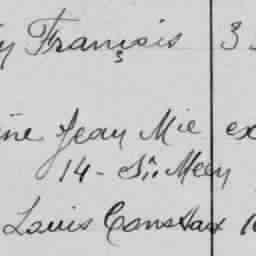 y François 3
ine Jean Mie ex
14 - St. Meen
Louis Constant 1